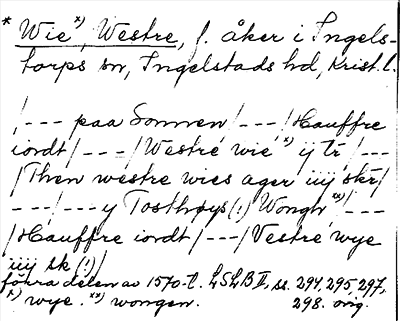 * Wie x), Westre, f. åker i Ingels-
torps sn, Ingelstads hd, Krist. l.
/--- paa Sonnen/---/Hauffre
iordt/---/Westre wie x) ij tr/---
/Then westre wies ager iiij skr/
---/---y Tosthøys(!) Wongh xx)/---
/Hauffre iordt/---/Vestre wye
iiij sk (!)/
förra delen av 1570-t. LSLB II, ss. 294, 295, 297,
x) wye. xx) wongen. 298. orig.